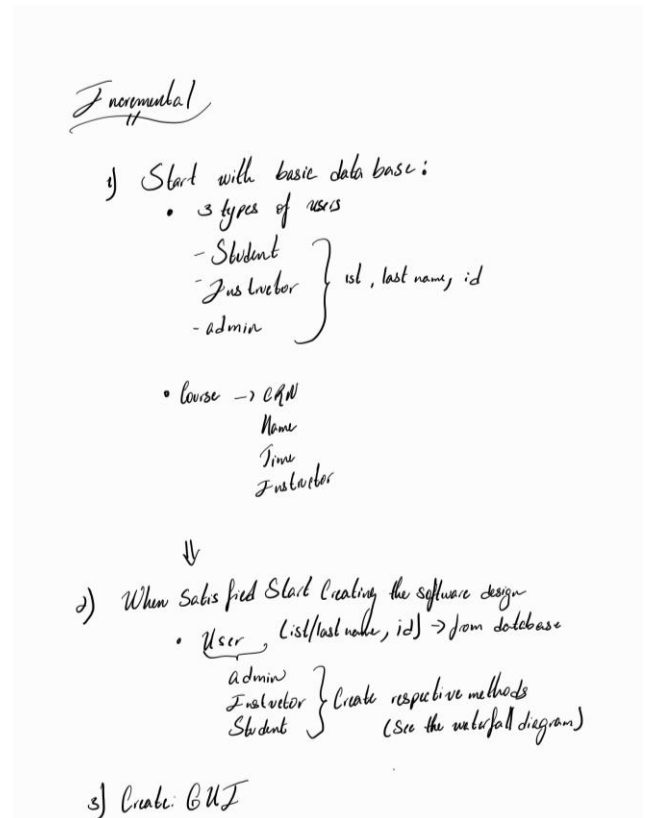 Incremental
1) Start with basic data base:
• 3 types of users
- Student
- Instructor } 1st, last name, id
- admin
• Course -> CRN
Name
Time
Instructor
⇓
2) When Satisfied Start Creating the software design
• User, (1st/last name, id) -> from database
admin
Instructor } Create respective methods
Student (See the waterfall diagram)
3) Create: GUI